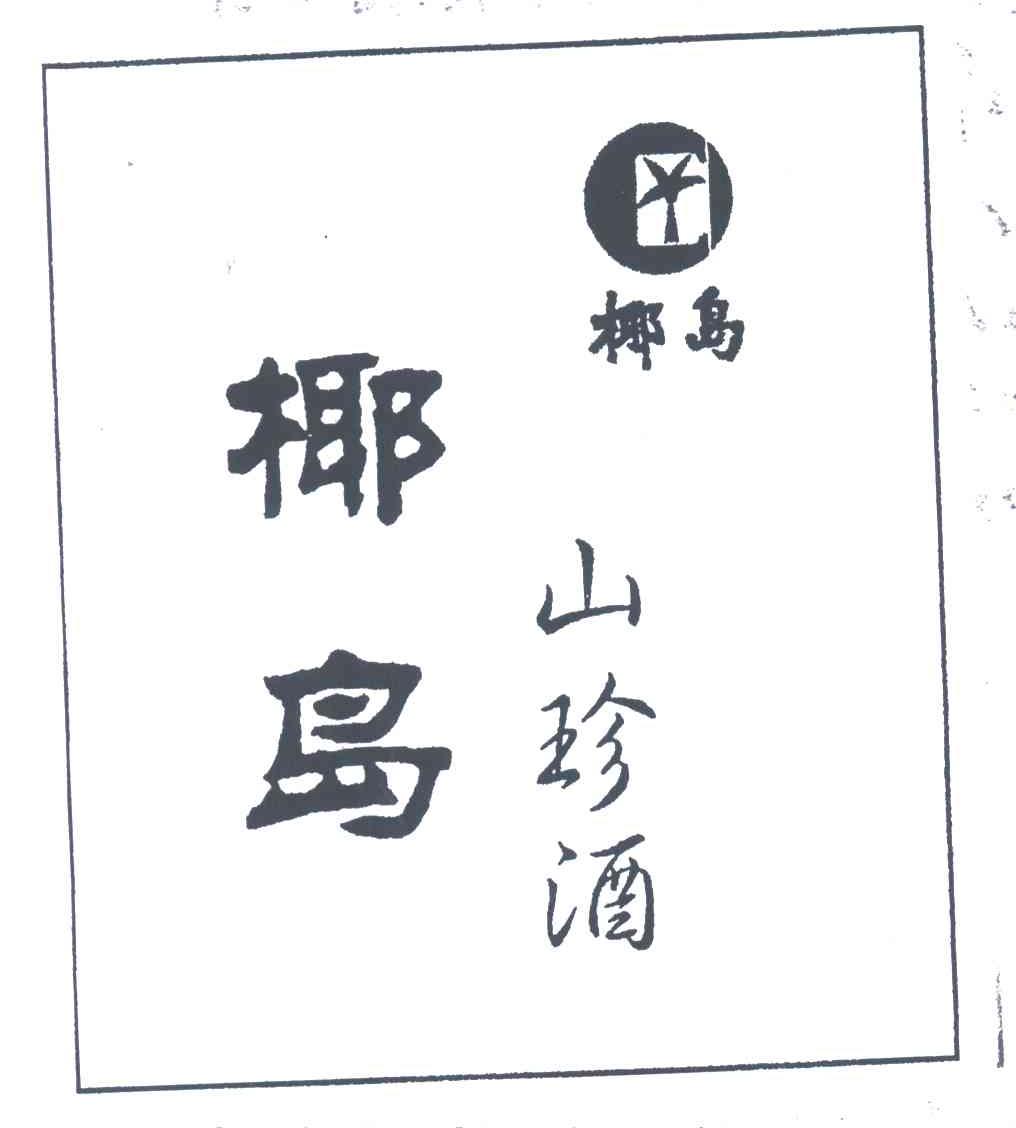 椰島
椰島
山珍酒